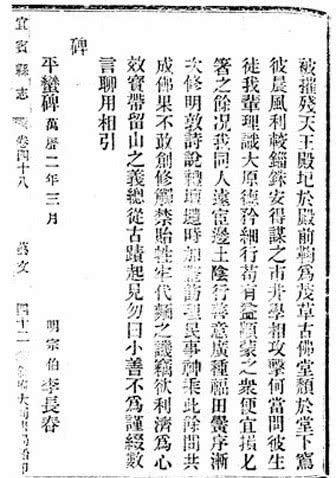 被摧殘天王殿圮於殿前鞠為茂草古佛堂頹於堂下窵
彼晨風利較錙銖安得謀之市井學相攻擊何當問彼生
徒我輩理識大原德矜細行苟有益顓蒙之衆便宜損匕
箸之餘况我同人遠宦邊土陰行善意廣種福田釁序漸
次修明敦詩說禮壇壝時加葺治民事神乘此餘閒共
成佛果不敢創修觸禁貽牲牢代麵之譏竊欲利濟為心
效實帶留山之義總從古蹟起見勿曰小善不為謹綴數
言聊用相引
碑
平蠻碑 萬曆二年三月
明宗伯李長春
宜賓縣志 卷四十八 藝文 四十二